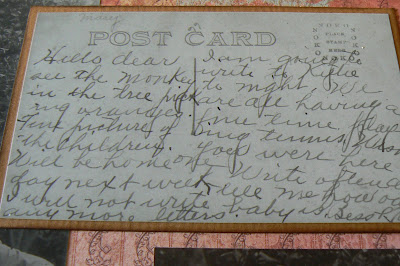 Mary
POST CARD
NOVO
PLACE
STAMP
HERE
Hello dear
see the monkey
in the tree pick
ing oranges
Fine picture of
the children.
Will be home one
day next week
I will not write
any more letters
I am going to
write to Kytie
to night. We
are all having a
fine time, play
ing tennis, Wish
you were here
Write often &
tell me how
baby is. Bess